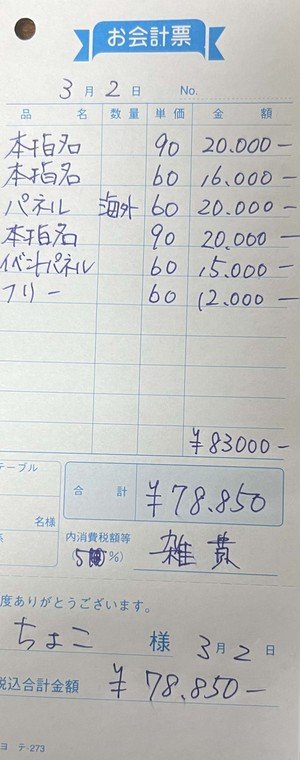 お会計票
3月2日 No.
品名 数量 単価 金額
本指名 90 20.000-
本指名 60 16.000-
パネル 海外 60 20.000-
本指名 90 20.000-
イベントパネル 60 15.000-
フリー 60 12.000-
¥83000-
テーブル
合計 ¥78.850
名様
内消費税額等
(5 %) 雑費
度ありがとうございます。
ちょこ 様 3月2日
税込合計金額 ¥78.850-
ヨ テ-273